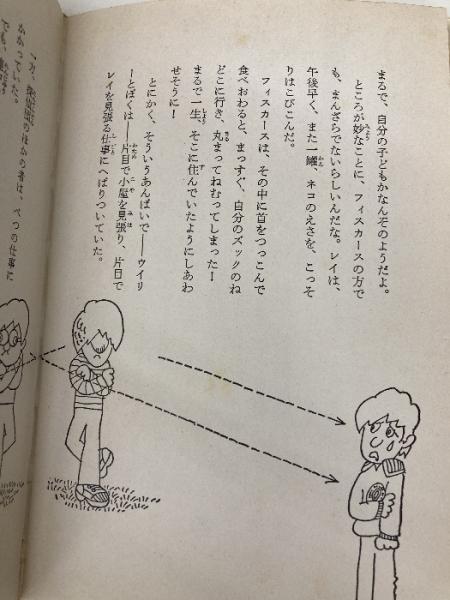 まるで、自分の子どもかなんぞのようだよ。
ところが妙なことに、フィスカースの方で
も、まんざらでないらしいんだな。レイは、
午後早く、また一罐、ネコのえさを、こっそ
りはこびこんだ。
フィスカースは、その中に首をつっこんで
食べおわると、まっすぐ、自分のズックのね
どこに行き、丸まってねむってしまった!
まるで一生、そこに住んでいたようにしあわ
せそうに!
とにかく、そういうあんばいで——ウイリ
ーとぼくは——片目で小屋を見張り、片目で
レイを見張る仕事にへばりついていた。
一方、
のほかの者は、べつの仕事に
かかっていた。
でも、